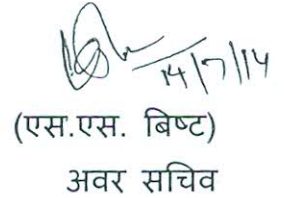 14/7/14
(एस.एस. बिष्ट)
अवर सचिव